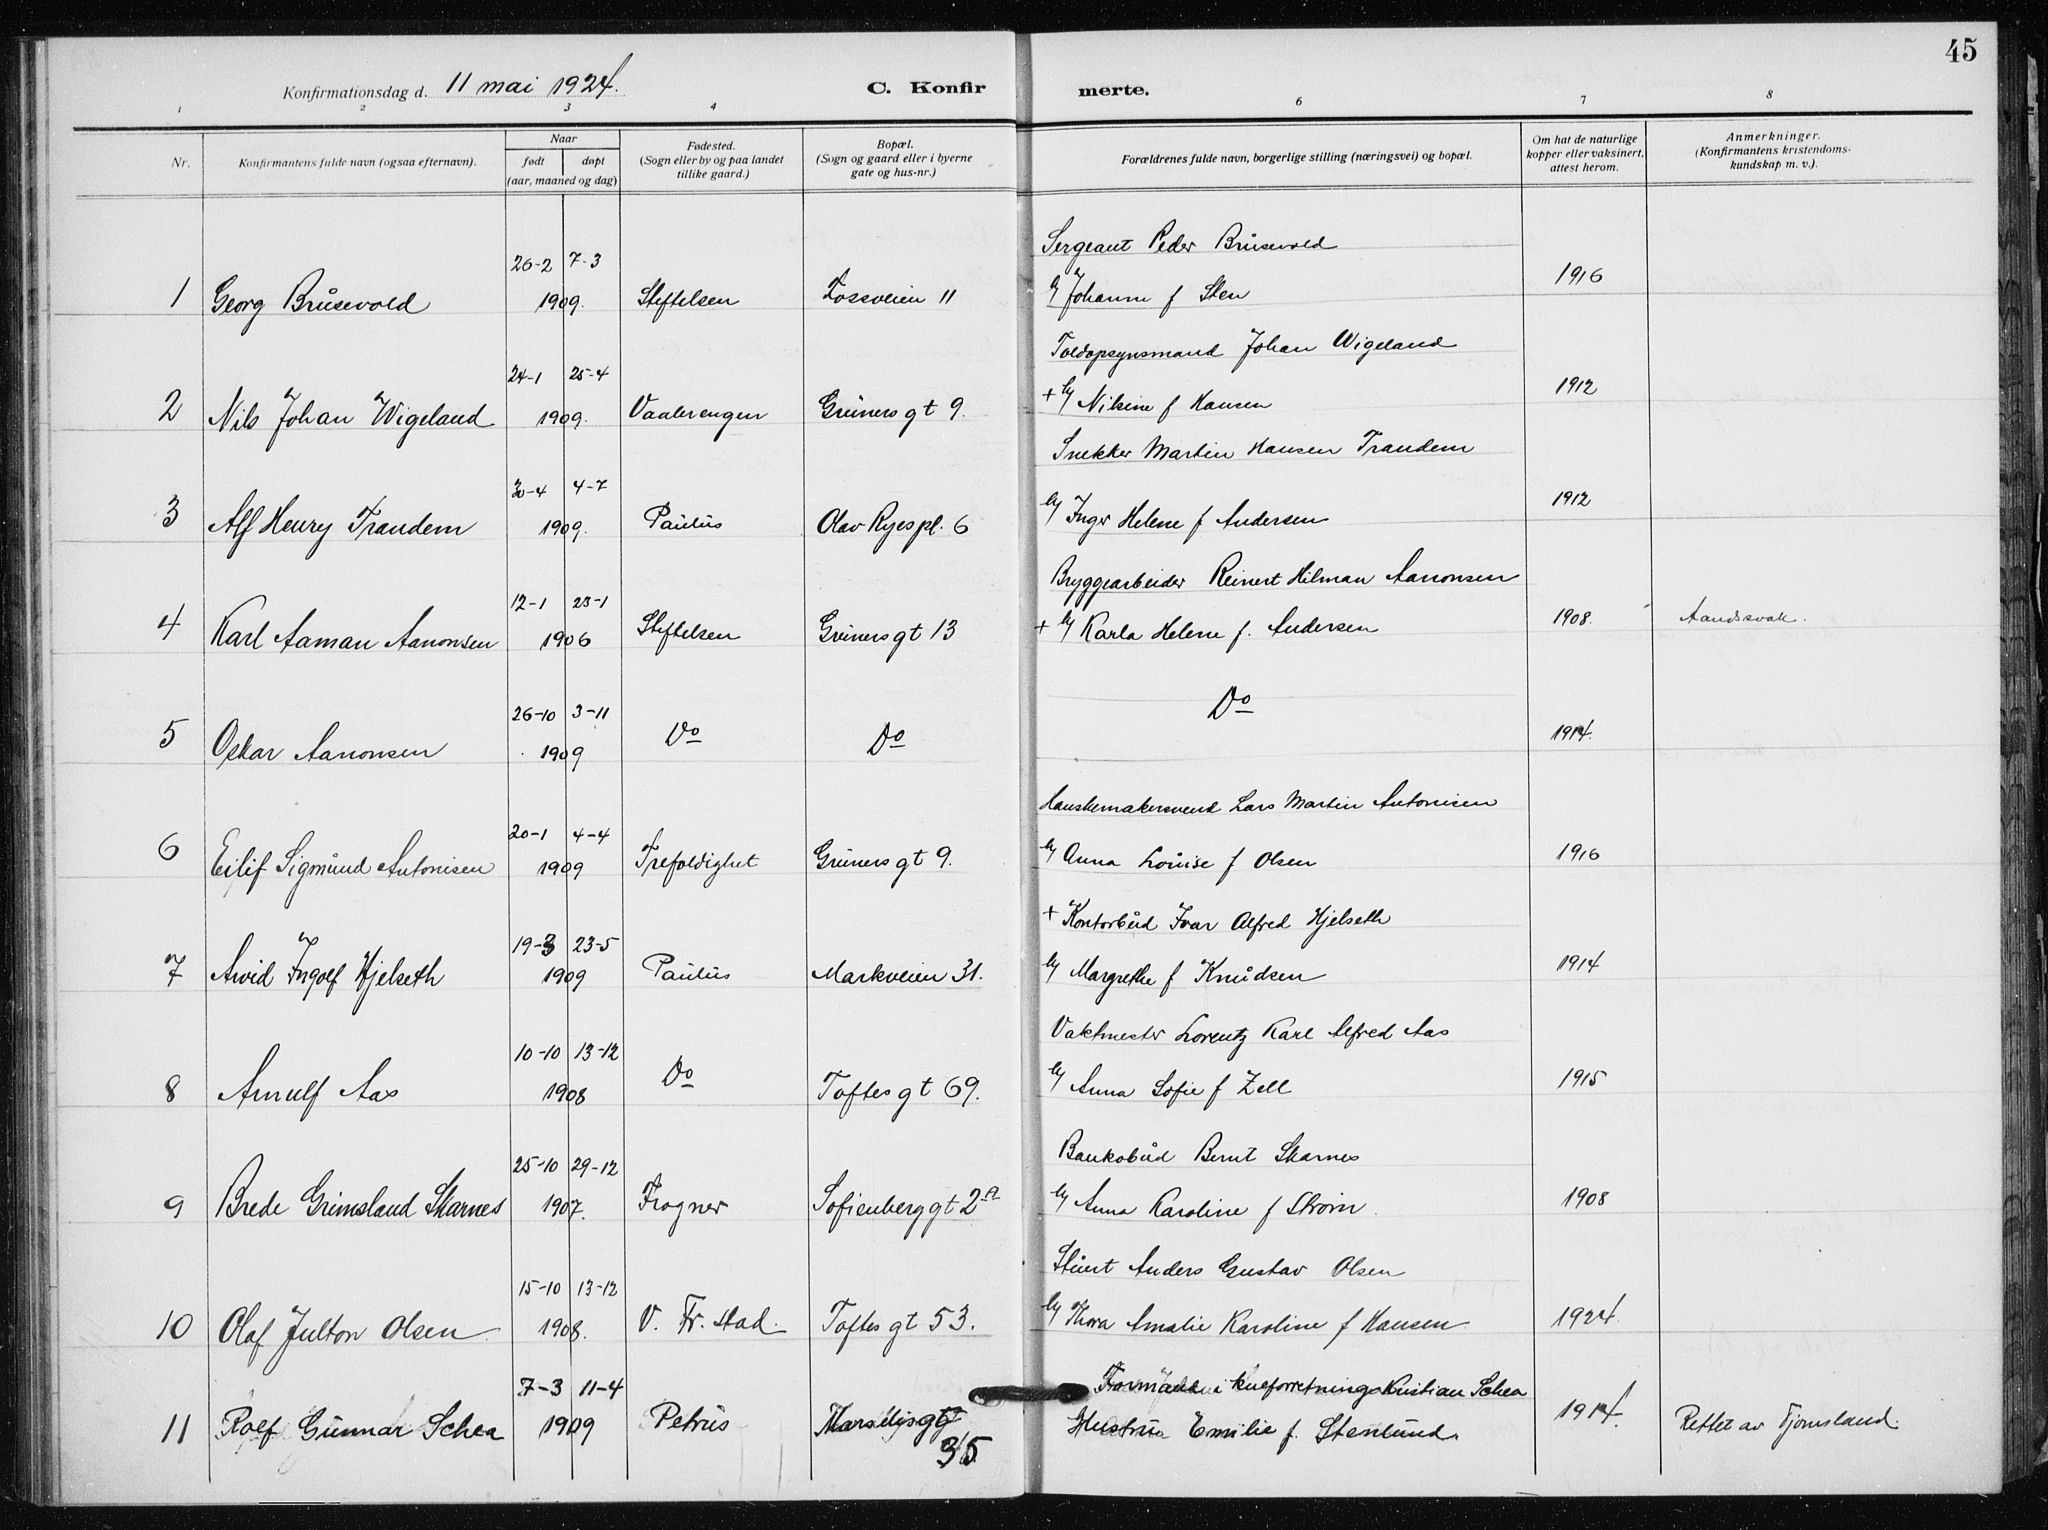 45
Konfirmationsdag d. 11 mai 1924. C. Konfir merte.
1 2 3 4 6 7 8
Nr. Konfirmantens fulde navn (ogsaa efternavn). Naar født døpt (aar, maaned og dag) Fødested. (Sogn eller by og paa landet tillike gaard.) Bopæl. (Sogn og gaard eller i byerne gate og hus-nr.) Forældrenes fulde navn, borgerlige stilling (næringsvei) og bopæl. Om hat de naturlige kopper eller vaksinert, attest herom. Anmerkninger. (Konfirmantens kristendoms- kundskap m. v.).
Sergeant Peder Brusevold
26-2 7-3
1 Georg Brusevold 1909. Stiftelsen Fossveien 11 Johanne f Sten 1916
Toldopsynsmand Johan Wigeland
24-1 25-4
2 Nils Johan Wigeland 1909. Vaalerengen Grüners gt 9. + Nilsine f Hansen 1912
Snekker Martin Hansen Trandem
30-4 4-7
3 Alf Henry Trandem 1909. Paulus Olav Ryes pl. 6 Inger Helene f Andersen 1912
Bryggearbeider Reinert Hilman Aanonsen
12-1 23-1
4 Karl Aaman Aanonsen 1906 Stiftelsen Grüners gt 13 + Karla Helene f. Andersen 1908 Aandssvak.
26-10 3-11 Do
5 Oskar Aanonsen 1909 Do Do 1914.
Hanskemakersvend Lars Martin Antonisen
20-1 4-4
6 Eilif Sigmund Antonisen 1909 Trefoldighet Grüners gt 9. Anna Louise f Olsen 1916
+ Kontorbud Ivar Alfred Hjelseth
19-3 23-5
7 Arvid Ingolf Hjelseth 1909 Paulus Markveien 31. Margrethe f Knudsen 1914
Vaktmester Lorentz Karl Alfred Aas
10-10 13-12
8 Arnulf Aas 1908 Do Toftes gt 69. Anna Sofie f Zell 1915
Bankobud Bernt Skarnes
25-10 29-12
9 Brede Grimsland Skarnes 1907. Frogner Sofienberggt 2a Anna Karoline f Strøm. 1908
Stuert Anders Gustav Olsen
15-10 13-12
10 Olaf Julton Olsen 1908. V. Fr. stad. Toftes gt 53. Thora Amalie Karoline f Hansen 1924.
7-3 11-4 Formand i kulforretning Kristian Schea
11 Rolf Gunnar Schea 1909 Petrus Marselisgt Hustru Emilie f. Stenlund. 1914. Rettet av Tjomsland.
35